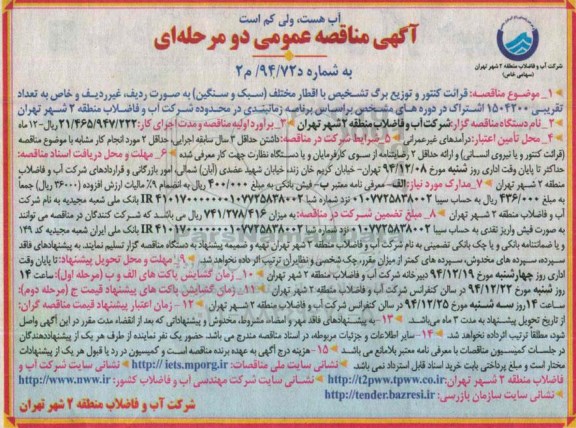 آب هست، ولی کم است
آگهی مناقصه عمومی دو مرحله‌ای
به شماره د۹۴/۷۲/ م۲
شرکت آب و فاضلاب منطقه ۲ شهر تهران
(سهامی خاص)
۱- موضوع مناقصه: قرائت کنتور و توزیع برگ تشخیص با اقطار مختلف (سبک و سنگین) به صورت ردیف، غیرردیف و خاص به تعداد
تقریبی ۱۵۰۴۳۰۰ اشتراک در دوره های مشخص براساس برنامه زمانبندی در محدوده شرکت آب و فاضلاب منطقه ۲ شهر تهران
۲- نام دستگاه مناقصه گزار: شرکت آب و فاضلاب منطقه ۲ شهر تهران ۳- برآورد اولیه مناقصه و مدت اجرای کار: ۲۱/۴۶۵/۹۴۷/۲۲۲ ریال-۱۲ ماه
۴- محل تأمین اعتبار: درآمدهای غیرعمرانی ۵- شرایط شرکت در مناقصه: داشتن حداقل ۳ سال سابقه اجرایی، حداقل ۲ مورد انجام کار مشابه با موضوع مناقصه
(قرائت کنتور و یا نیروی انسانی) و ارائه حداقل ۲ رضایتنامه از سوی کارفرمایان و یا دستگاه نظارت جهت کار معرفی شده ۶- مهلت و محل دریافت اسناد مناقصه:
حداکثر تا پایان وقت اداری روز شنبه مورخ ۹۴/۱۲/۰۸ تهران- خیابان کریم خان زند، خیابان شهید عضدی (آبان) شمالی، امور بازرگانی و قراردادهای شرکت آب و فاضلاب
منطقه ۲ شهر تهران ۷- مدارک مورد نیاز: الف- معرفی نامه معتبر ب- فیش بانکی به مبلغ ۴۰۰/۰۰۰ ریال به انضمام ۹٪ مالیات ارزش افزوده (۳۶۰۰۰ ریال) جمعاً
به مبلغ ۴۳۶/۰۰۰ ریال به حساب سیبا ۰۱۰۷۷۲۵۸۳۸۰۰۲ نزد شماره شبا IR ۴۱۰۱۷۰۰۰۰۰۰۰۱۰۷۷۲۵۸۳۸۰۰۲ بانک ملی شعبه مجیدیه به نام شرکت
آب و فاضلاب منطقه ۲ شهر تهران ۸- مبلغ تضمین شرکت در مناقصه: به میزان ۷۴۱/۲۷۸/۴۱۶ ریال می باشد که شرکت کنندگان در مناقصه می توانند
به صورت فیش واریز نقدی به حساب سیبا ۰۱۰۷۷۲۵۸۳۸۰۰۲ نزد شماره شبا IR ۴۱۰۱۷۰۰۰۰۰۰۰۱۰۷۷۲۵۸۳۸۰۰۲ بانک ملی ایران شعبه مجیدیه کد ۱۴۹
و یا ضمانتنامه بانکی و یا چک بانکی تضمینی به نام شرکت آب و فاضلاب منطقه ۲ شهر تهران تهیه و ضمیمه پیشنهاد به دستگاه مناقصه گزار تسلیم نمایند. به پیشنهادهای فاقد
سپرده، سپرده های مخدوش، سپرده های کمتر از میزان مقرر، چک شخصی و نظایر آن ترتیب اثر داده نخواهد شد ۹- مهلت و محل تحویل پیشنهاد: تا پایان وقت
اداری روز چهارشنبه مورخ ۹۴/۱۲/۱۹ دبیرخانه شرکت آب و فاضلاب منطقه ۲ شهر تهران ۱۰- زمان گشایش پاکت های الف و ب (مرحله اول): ساعت ۱۴
روز شنبه مورخ ۹۴/۱۲/۲۲ در سالن کنفرانس شرکت آب و فاضلاب منطقه ۲ شهر تهران ۱۱- زمان گشایش پاکت های پیشنهاد قیمت ج (مرحله دوم):
ساعت ۱۴ روز سه شنبه مورخ ۹۴/۱۲/۲۵ در سالن کنفرانس شرکت آب و فاضلاب منطقه ۲ شهر تهران ۱۲- زمان اعتبار پیشنهاد قیمت مناقصه گران:
از تاریخ تحویل پیشنهاد به مدت ۳ ماه می‌باشد. ۱۳- به پیشنهادهای فاقد مهر و امضاء، مشروط، مخدوش و پیشنهاداتی که بعد از انقضاء مدت مقرر در این آگهی واصل
شود، مطلقاً ترتیب اثر داده نخواهد شد. ۱۴- سایر اطلاعات و جزئیات مربوطه، در اسناد مناقصه مندرج می باشد. حضور یک نفر نماینده از طرف هر یک از پیشنهاددهندگان
در جلسات کمیسیون مناقصات با معرفی نامه معتبر بلامانع می باشد ۱۵- هزینه درج آگهی به عهده برنده مناقصه است و کمیسیون در رد یا قبول هر یک از پیشنهادات
مختار است و مبلغ پرداختی بابت خرید اسناد قابل استرداد نمی باشد. نشانی سایت ملی مناقصات: http:// iets.mporg.ir نشانی سایت شرکت آب و
فاضلاب منطقه ۲ شهر تهران: http://t2pww.tpww.co.ir نشانی سایت شرکت مهندسی آب و فاضلاب کشور: http://www.nww.ir
نشانی سایت سازمان بازرسی: http://tender.bazresi.ir
شرکت آب و فاضلاب منطقه ۲ شهر تهران